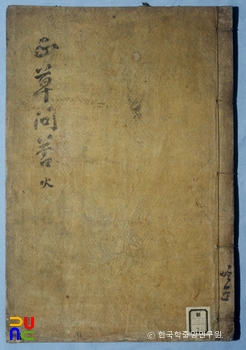 正草問答 火
© 한국학중앙연구원